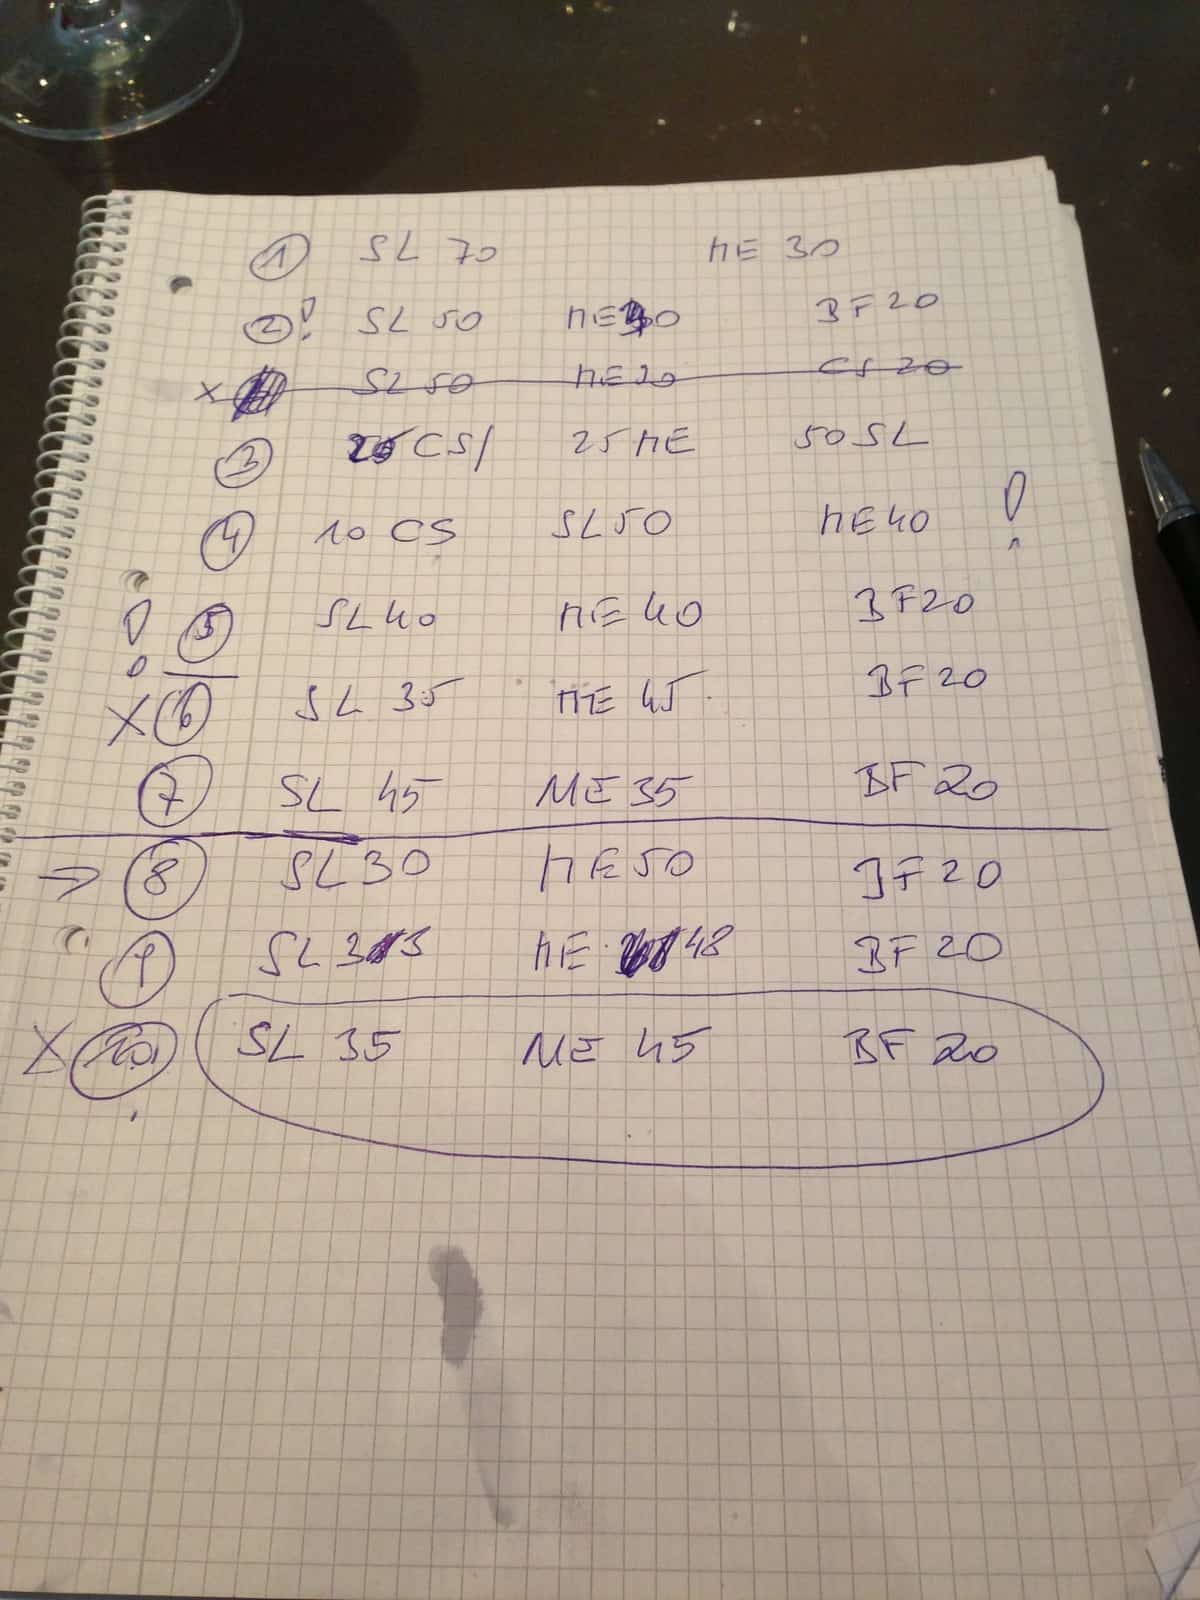 1 SL 70 ME 30
2 ! SL 50 ME 30 BF 20
x SL 50 ME 20 CS 20
3 25 CS/ 25 ME 50 SL
4 10 CS SL 50 ME 40 !
! 5 SL 40 ME 40 BF 20
X 6 SL 35 ME 45 BF 20
7 SL 45 ME 35 BF 20
→ 8 SL 30 ME 50 BF 20
9 SL 33 ME 48 BF 20
X 10 SL 35 ME 45 BF 20